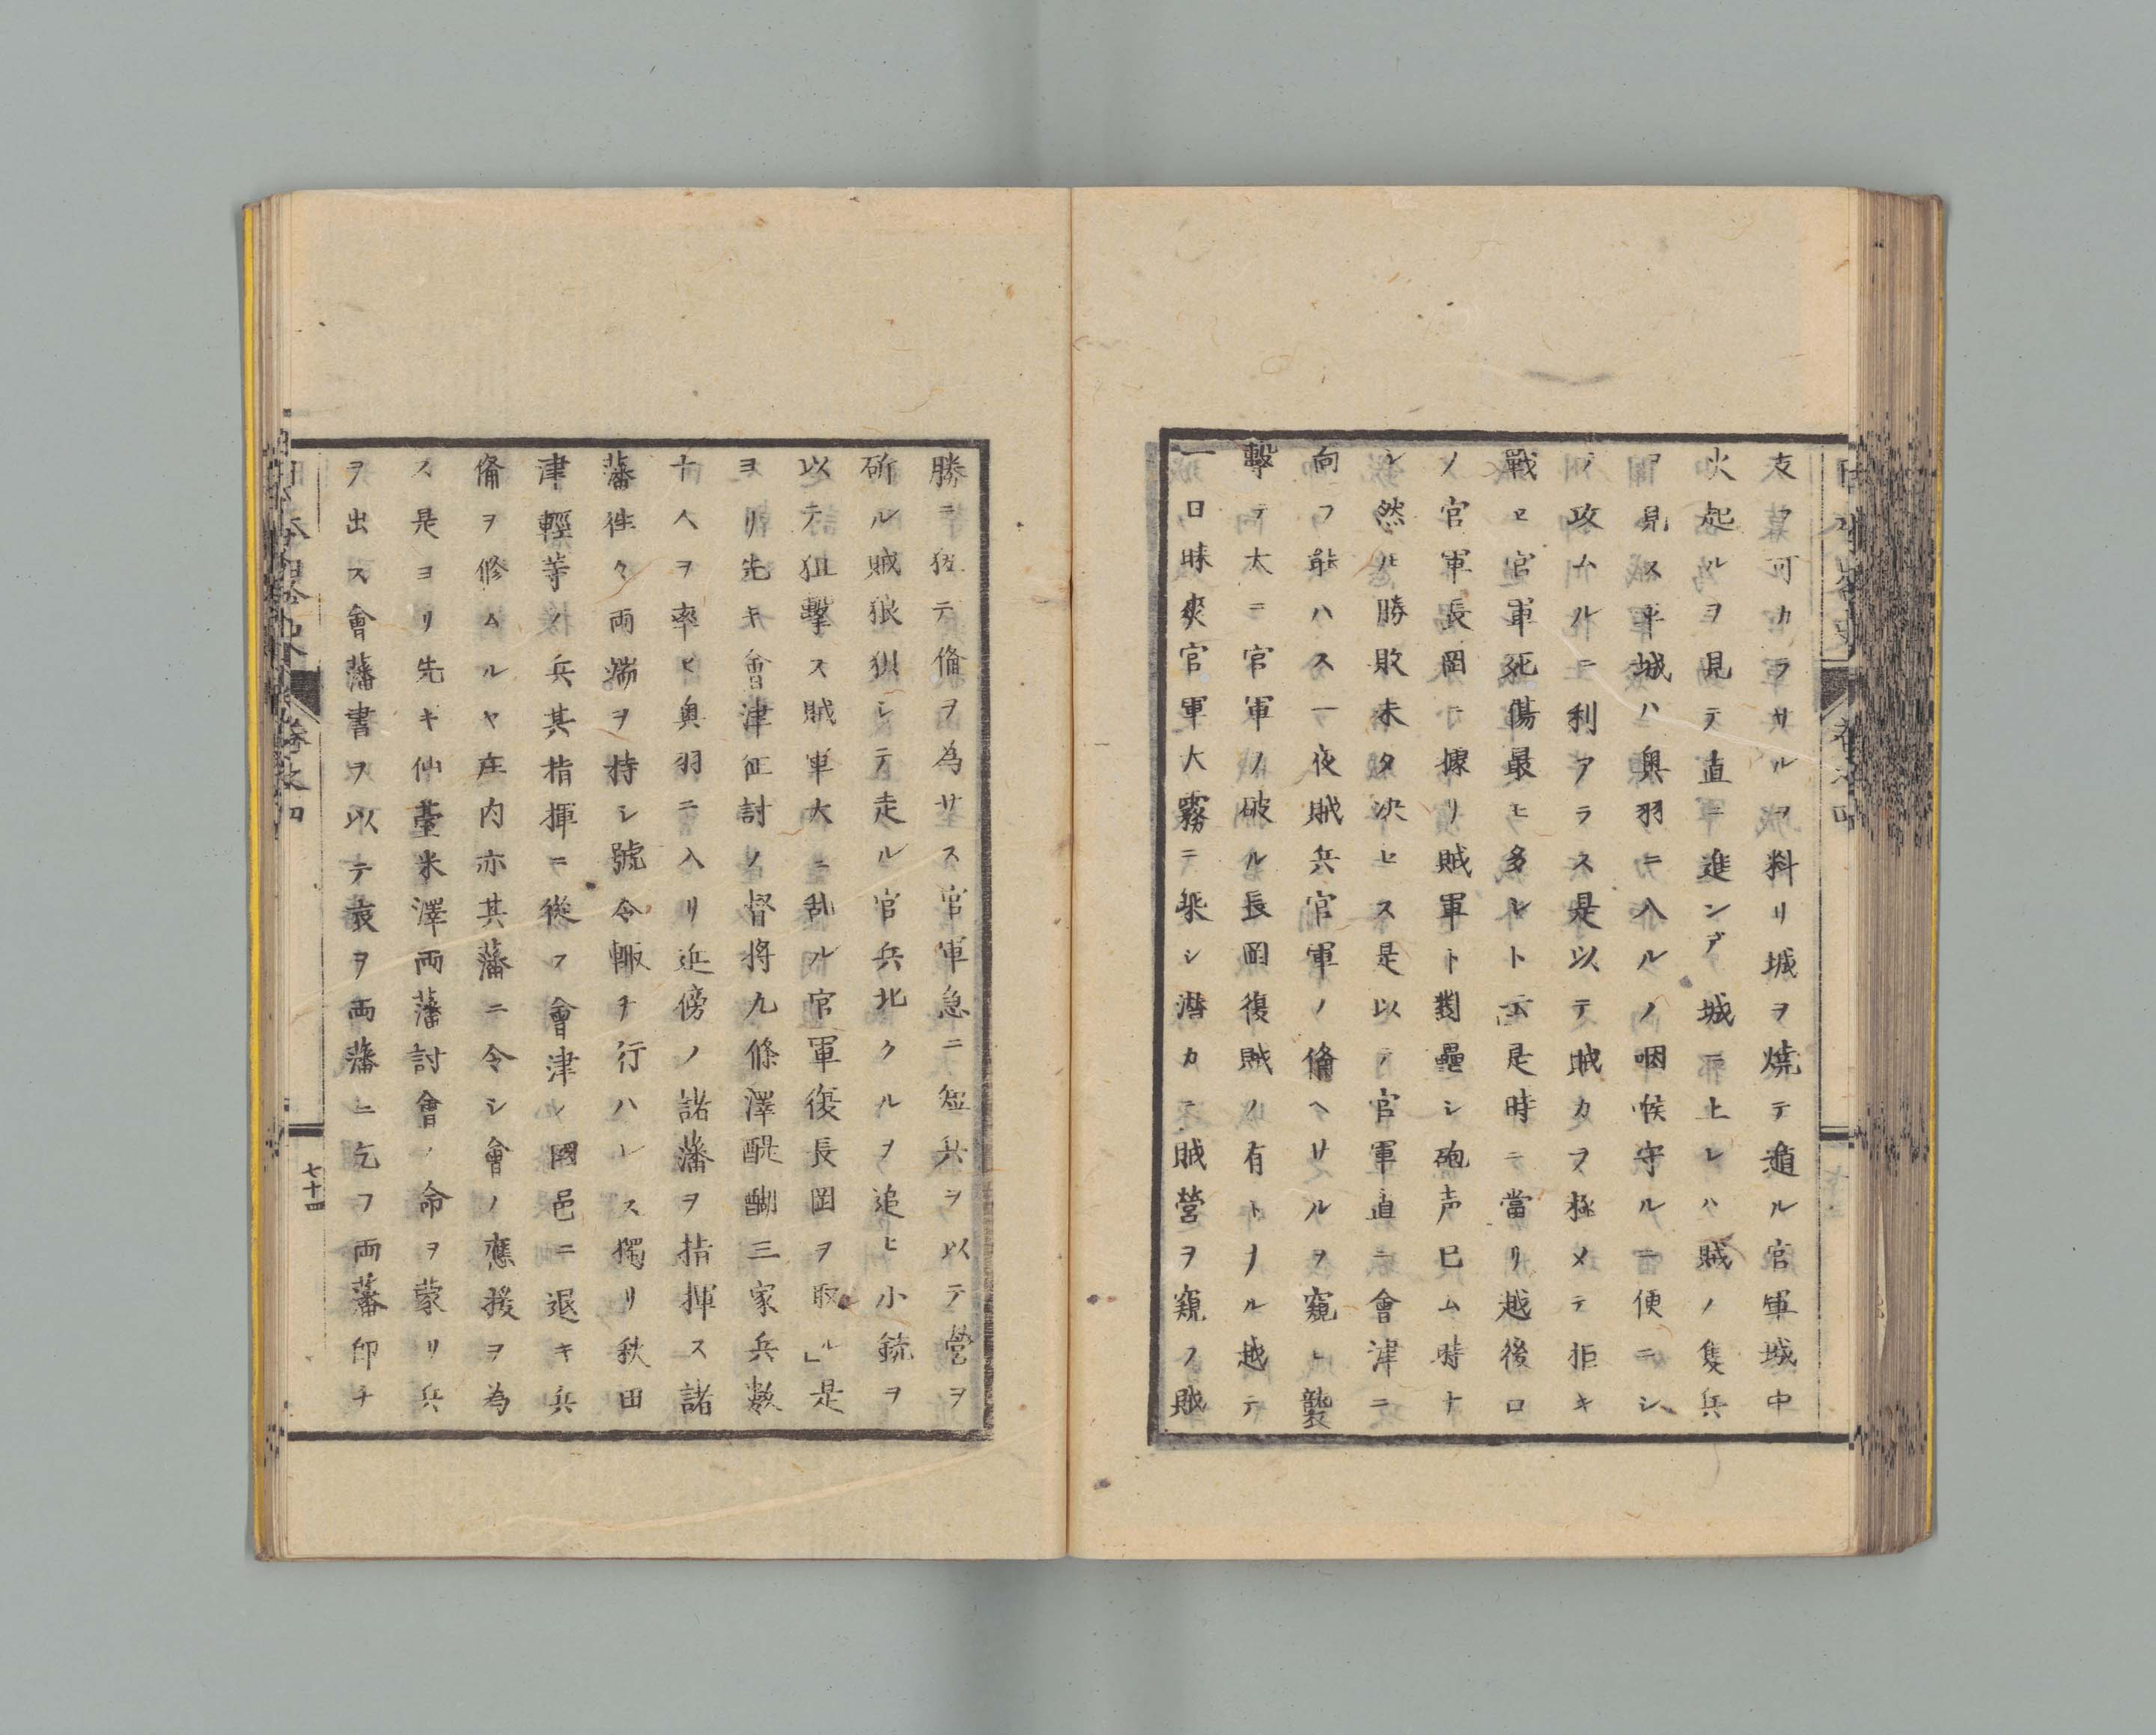 支フ可カラサルヲ料リ城ヲ燒テ遁ル官軍城中
火起ルヲ見テ直ニ進ンテ城ニ上レハ賊ノ隻兵
ヲ見ス平城ハ奥羽ニ入ルノ咽喉守ルニ便ニシ
テ攻ムルニ利アラス是以テ賊カヲ極メテ拒キ
戰ヒ官軍死傷最モ多シト云」是時ニ當リ越後口
ノ官軍長岡ニ據リ賊軍ト對壘シ砲声已ム時ナ
シ然レ𪜈勝敗未タ决セス是以テ官軍直ニ會津ニ
向フ能ハス一夜賊兵官軍ノ備ヘサルヲ窺ヒ襲
擊テ大ニ官軍ノ破ル長岡復賊ノ有トナル越テ
一日昧爽官軍大霧ニ乗シ潜カニ賊營ヲ窺フ賊
勝ニ狃テ備ヲ為サス官軍急ニ短兵ヲ以テ營ヲ
斫ル賊狼狽シテ走ル官兵北クルヲ追ヒ小銃ヲ
以テ狙擊ス賊軍大ニ乱ル官軍復長岡ヲ取ル」是
ヨリ先キ會津征討ノ督將九條澤醍醐三家兵數
十人ヲ率ヒ奥羽ニ入リ近傍ノ諸藩ヲ指揮ス諸
藩徃々両端ヲ持シ號令輙チ行ハレス獨リ秋田
津輕等ノ兵其指揮ニ從フ會津ノ國邑ニ退キ兵
備ヲ修ムルヤ庄内亦其藩ニ令シ會ノ應援ヲ為
ス是ヨリ先キ仙臺米澤両藩討會ノ命ヲ蒙リ兵
ヲ出ス會藩書ヲ以テ哀ヲ両藩ニ乞フ両藩印チ
七十四